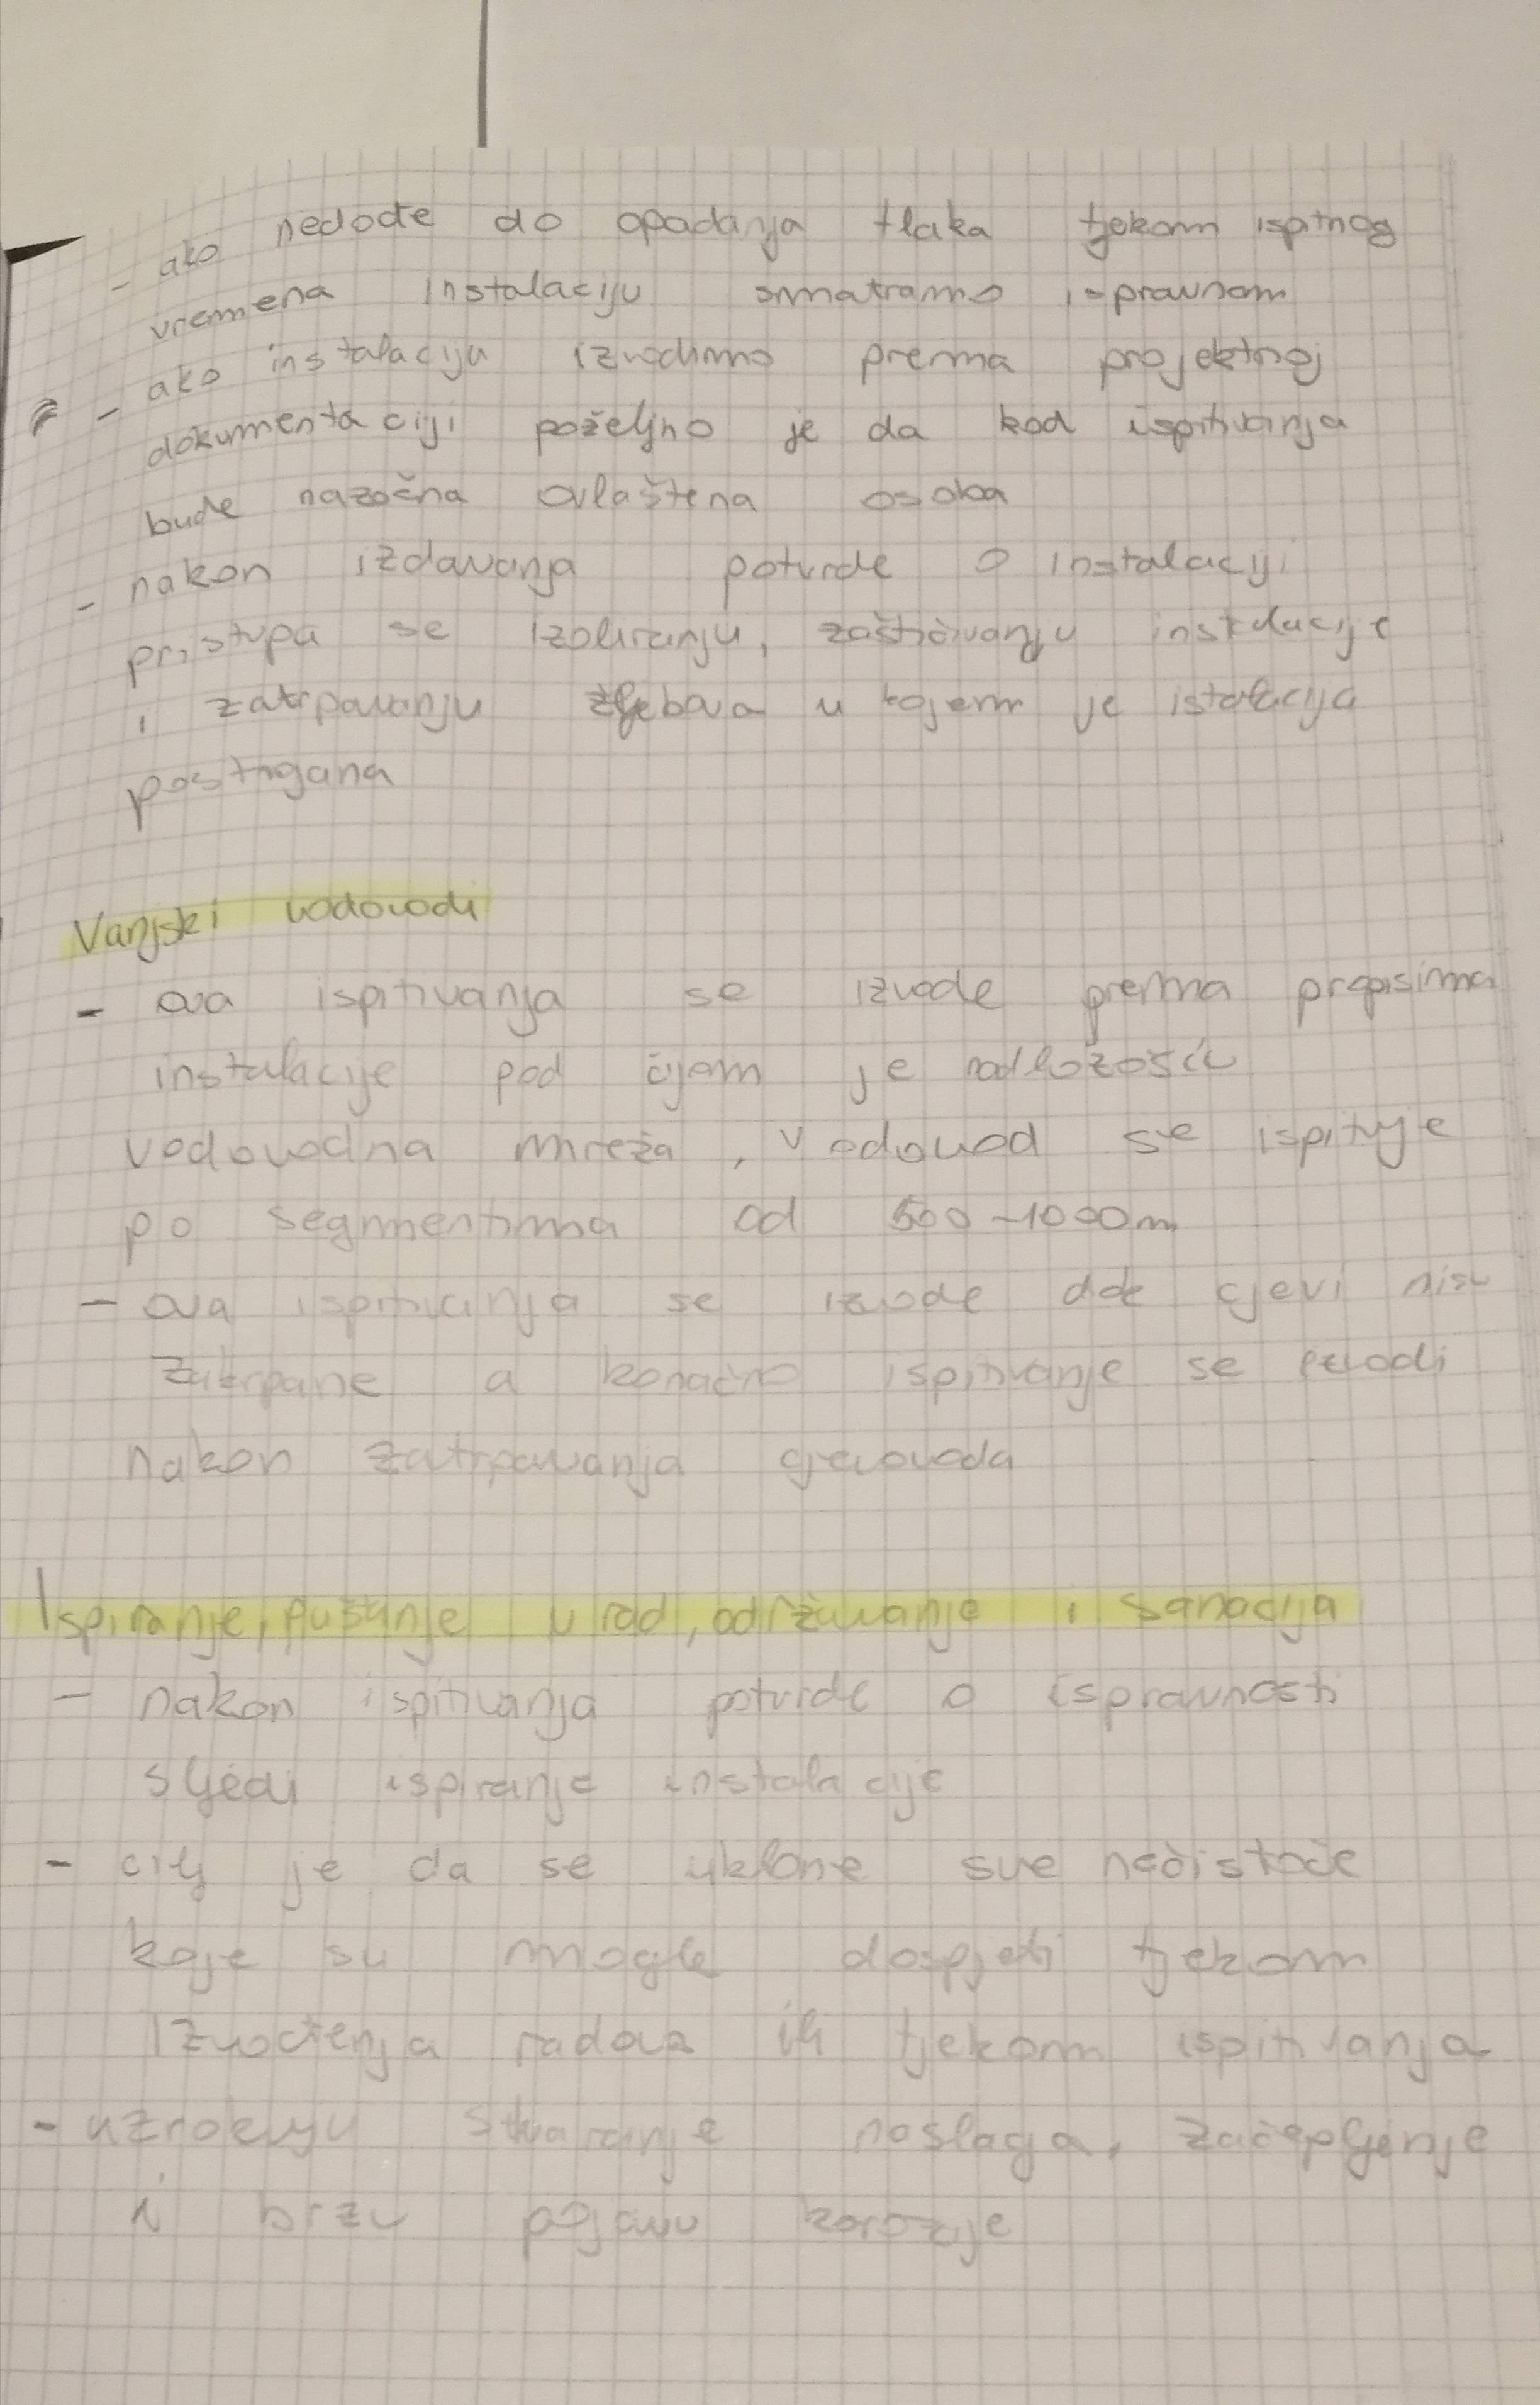 - ako nedođe do opadanja tlaka tjekom ispitnog
vremena instalaciju smatramo ispravnom
- ako instalaciju izvodimo prema projektnoj
dokumentaciji poželjno je da kod ispitivanja
bude nazočna ovlaštena osoba
- nakon izdavanja potvrde o instalaciji
pristupa se izoliranju, zaštićivanju instalacije
i zatrpavanju žljebova u kojem je istalacija
Vanjski vodovodi
- ova ispitivanja se izvode prema propisima
instalacije pod čijom je
vodovodna mreža, vodovod se ispituje
po segmentima od 500-1000m
- ova ispitivanja se izvode dok cjevi nisu
zatrpane a konačno ispitivanje se
nakon zatrpavanja cjevovoda
Ispiranje, puštanje u rad, održavanje i sanacija
- nakon ispitivanja potvrde o ispravnosti
sljedi ispiranje instalacije
- cilj je da se uklone sve nečistoče
koje su mogle dospjeti tjekom
izvođenja radova ili tjekom ispitivanja
- uzrokuju stvaranje naslaga, začepljenje
i brzu pojavu korozije